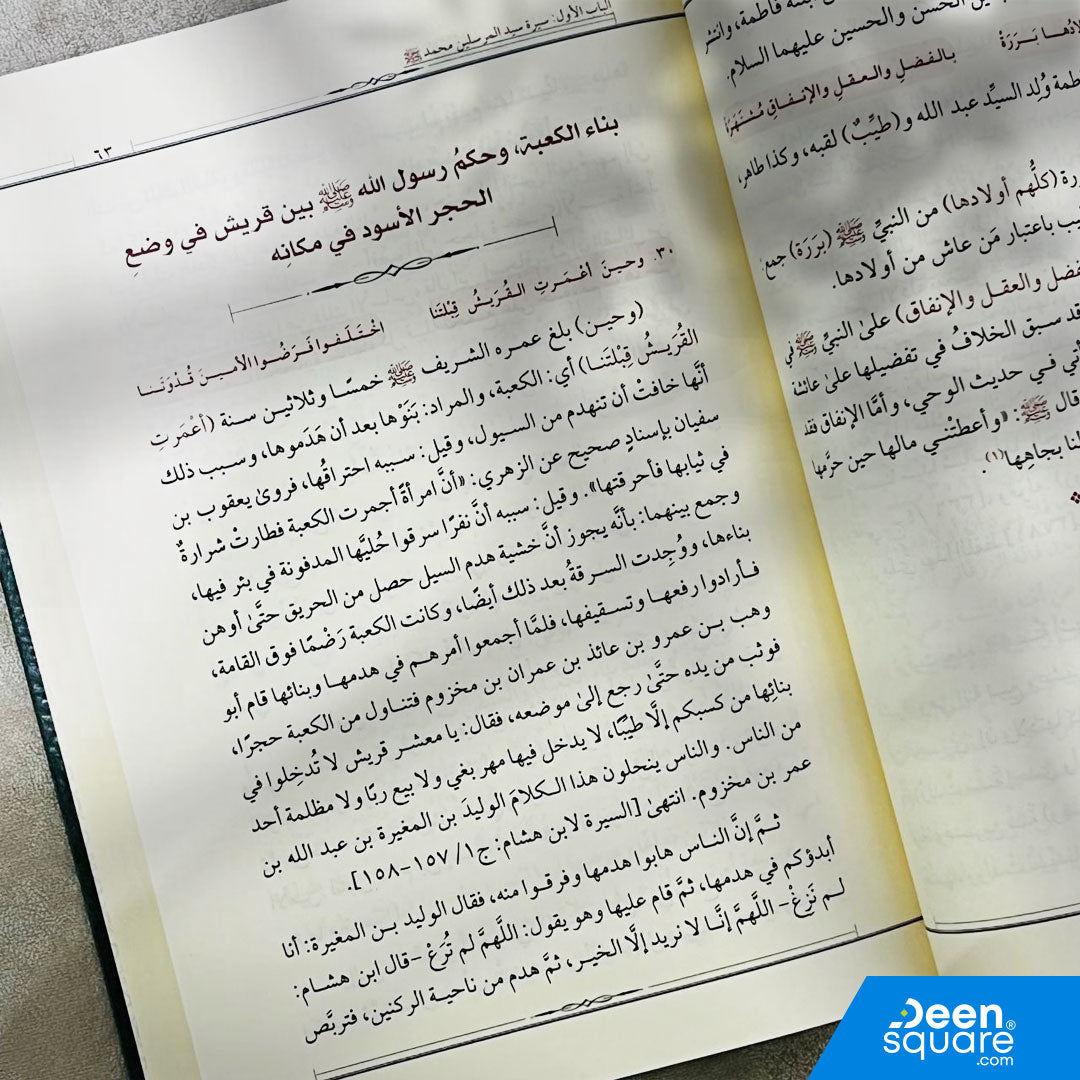 الباب الأول: سيرة سيد المرسلين محمد ﷺ
٦٣
بناء الكعبة، وحكمُ رسول الله ﷺ بين قريش في وضعِ
الحجر الأسود في مكانِه
٣٠. وحينَ أعْمَرتِ القُرَيْشُ قِبْلَتَنا
اخْتَلَفوا فَرَضُوا الأمينَ قُدْوَتَنا
(وحين) بلغ عمره الشريف ﷺ خمسًا وثلاثين سنة (أعْمَرتِ
القُرَيشُ قِبْلَتَنا) أي: الكعبة، والمراد: بَنَوْها بعد أن هَدَموها، وسبب ذلك
أنَّها خافتْ أن تنهدم من السيول، وقيل: سببه احتراقُها، فروىٰ يعقوب بن
سفيان بإسنادٍ صحيح عن الزهري: «أنَّ امرأةً أجمرت الكعبة فطارتْ شرارةٌ
في ثيابها فأحرقتها». وقيل: سببه أنَّ نفرًا سرقوا حُليَّها المدفونة في بئر فيها،
وجمع بينهما: بأنَّه يجوز أنَّ خشية هدم السيل حصل من الحريق حتَّىٰ أوهن
بناءها، ووُجِدت السرقةُ بعد ذلك أيضًا، وكانت الكعبة رَضْمًا فوق القامة،
فأرادوا رفعها وتسقيفها، فلمَّا أجمعوا أمرهم في هدمها وبنائها قام أبو
وهب بن عمرو بن عائذ بن عمران بن مخزوم فتناول من الكعبة حجرًا،
فوثب من يده حتَّىٰ رجع إلىٰ موضعه، فقال: يا معشر قريش لا تُدخِلوا في
بنائِها من كسبكم إلَّا طيبًا، لا يدخل فيها مهر بغي ولا بيع ربًا ولا مظلمة أحد
من الناس. والناس ينحلون هذا الكلامَ الوليدَ بن المغيرة بن عبد الله بن
عمر بن مخزوم. انتهىٰ [السيرة لابن هشام: ج١/ ١٥٧-١٥٨].
ثمَّ إنَّ الناس هابوا هدمها وفرقوا منه، فقال الوليد بن المغيرة: أنا
أبدؤكم في هدمها، ثمَّ قام عليها وهو يقول: اللَّهمَّ لم تُرَعْ -قال ابن هشام:
لم نَزِغْ- اللَّهمَّ إنَّا لا نريد إلَّا الخير، ثمَّ هدم من ناحية الركنين، فتربَّص
الحسن والحسين عليهما السلام.
بالفضلِ والعقلِ والإنفاقِ
وُلِد السيِّد عبد الله و(طيِّبٌ) لقبه، وكذا طاهر،
(كلُّهم أولادها) من النبيِّ ﷺ (بررَة) جمع
باعتبار مَن عاش من أولادها.
والعقل والإنفاق) علىٰ النبيِّ ﷺ في
سبق الخلافُ في تفضيلها علىٰ عائشة
في حديث الوحي، وأمَّا الإنفاق فقد
قال ﷺ: «وأعطتْني مالها حين حرَّمها
بجاهِها»(١).
Deen®
square
.com